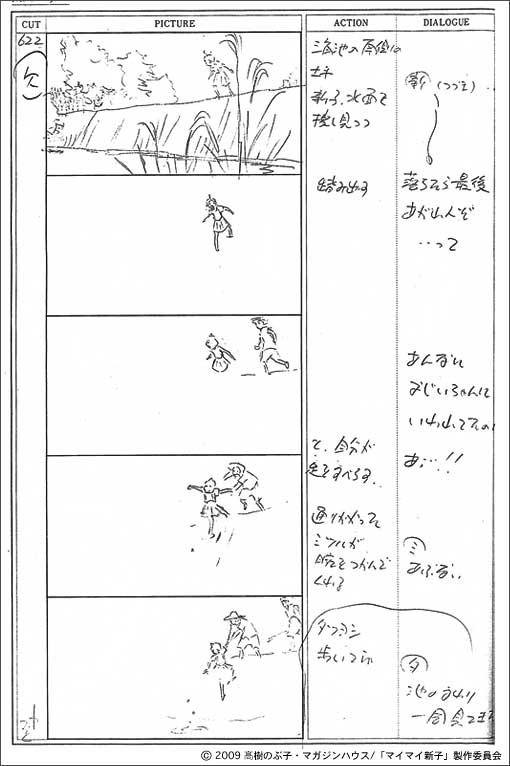 CUT
PICTURE
ACTION
DIALOGUE
622
欠
新子、水面を
探し見つつ
踏み出す
新
(つづき)
落ちたら最後
あがれんぞ
…って
あんなに
おじいちゃんに
いわれてたの
あ…!!
と、自分が
足をすべらす
通りがかって
ミツルが
腕をつかんで
くれる
ミ
あぶない
タツヨシ
歩いて
タ
池のまわり
一回見て
© 2009 髙樹のぶ子・マガジンハウス/「マイマイ新子」製作委員会